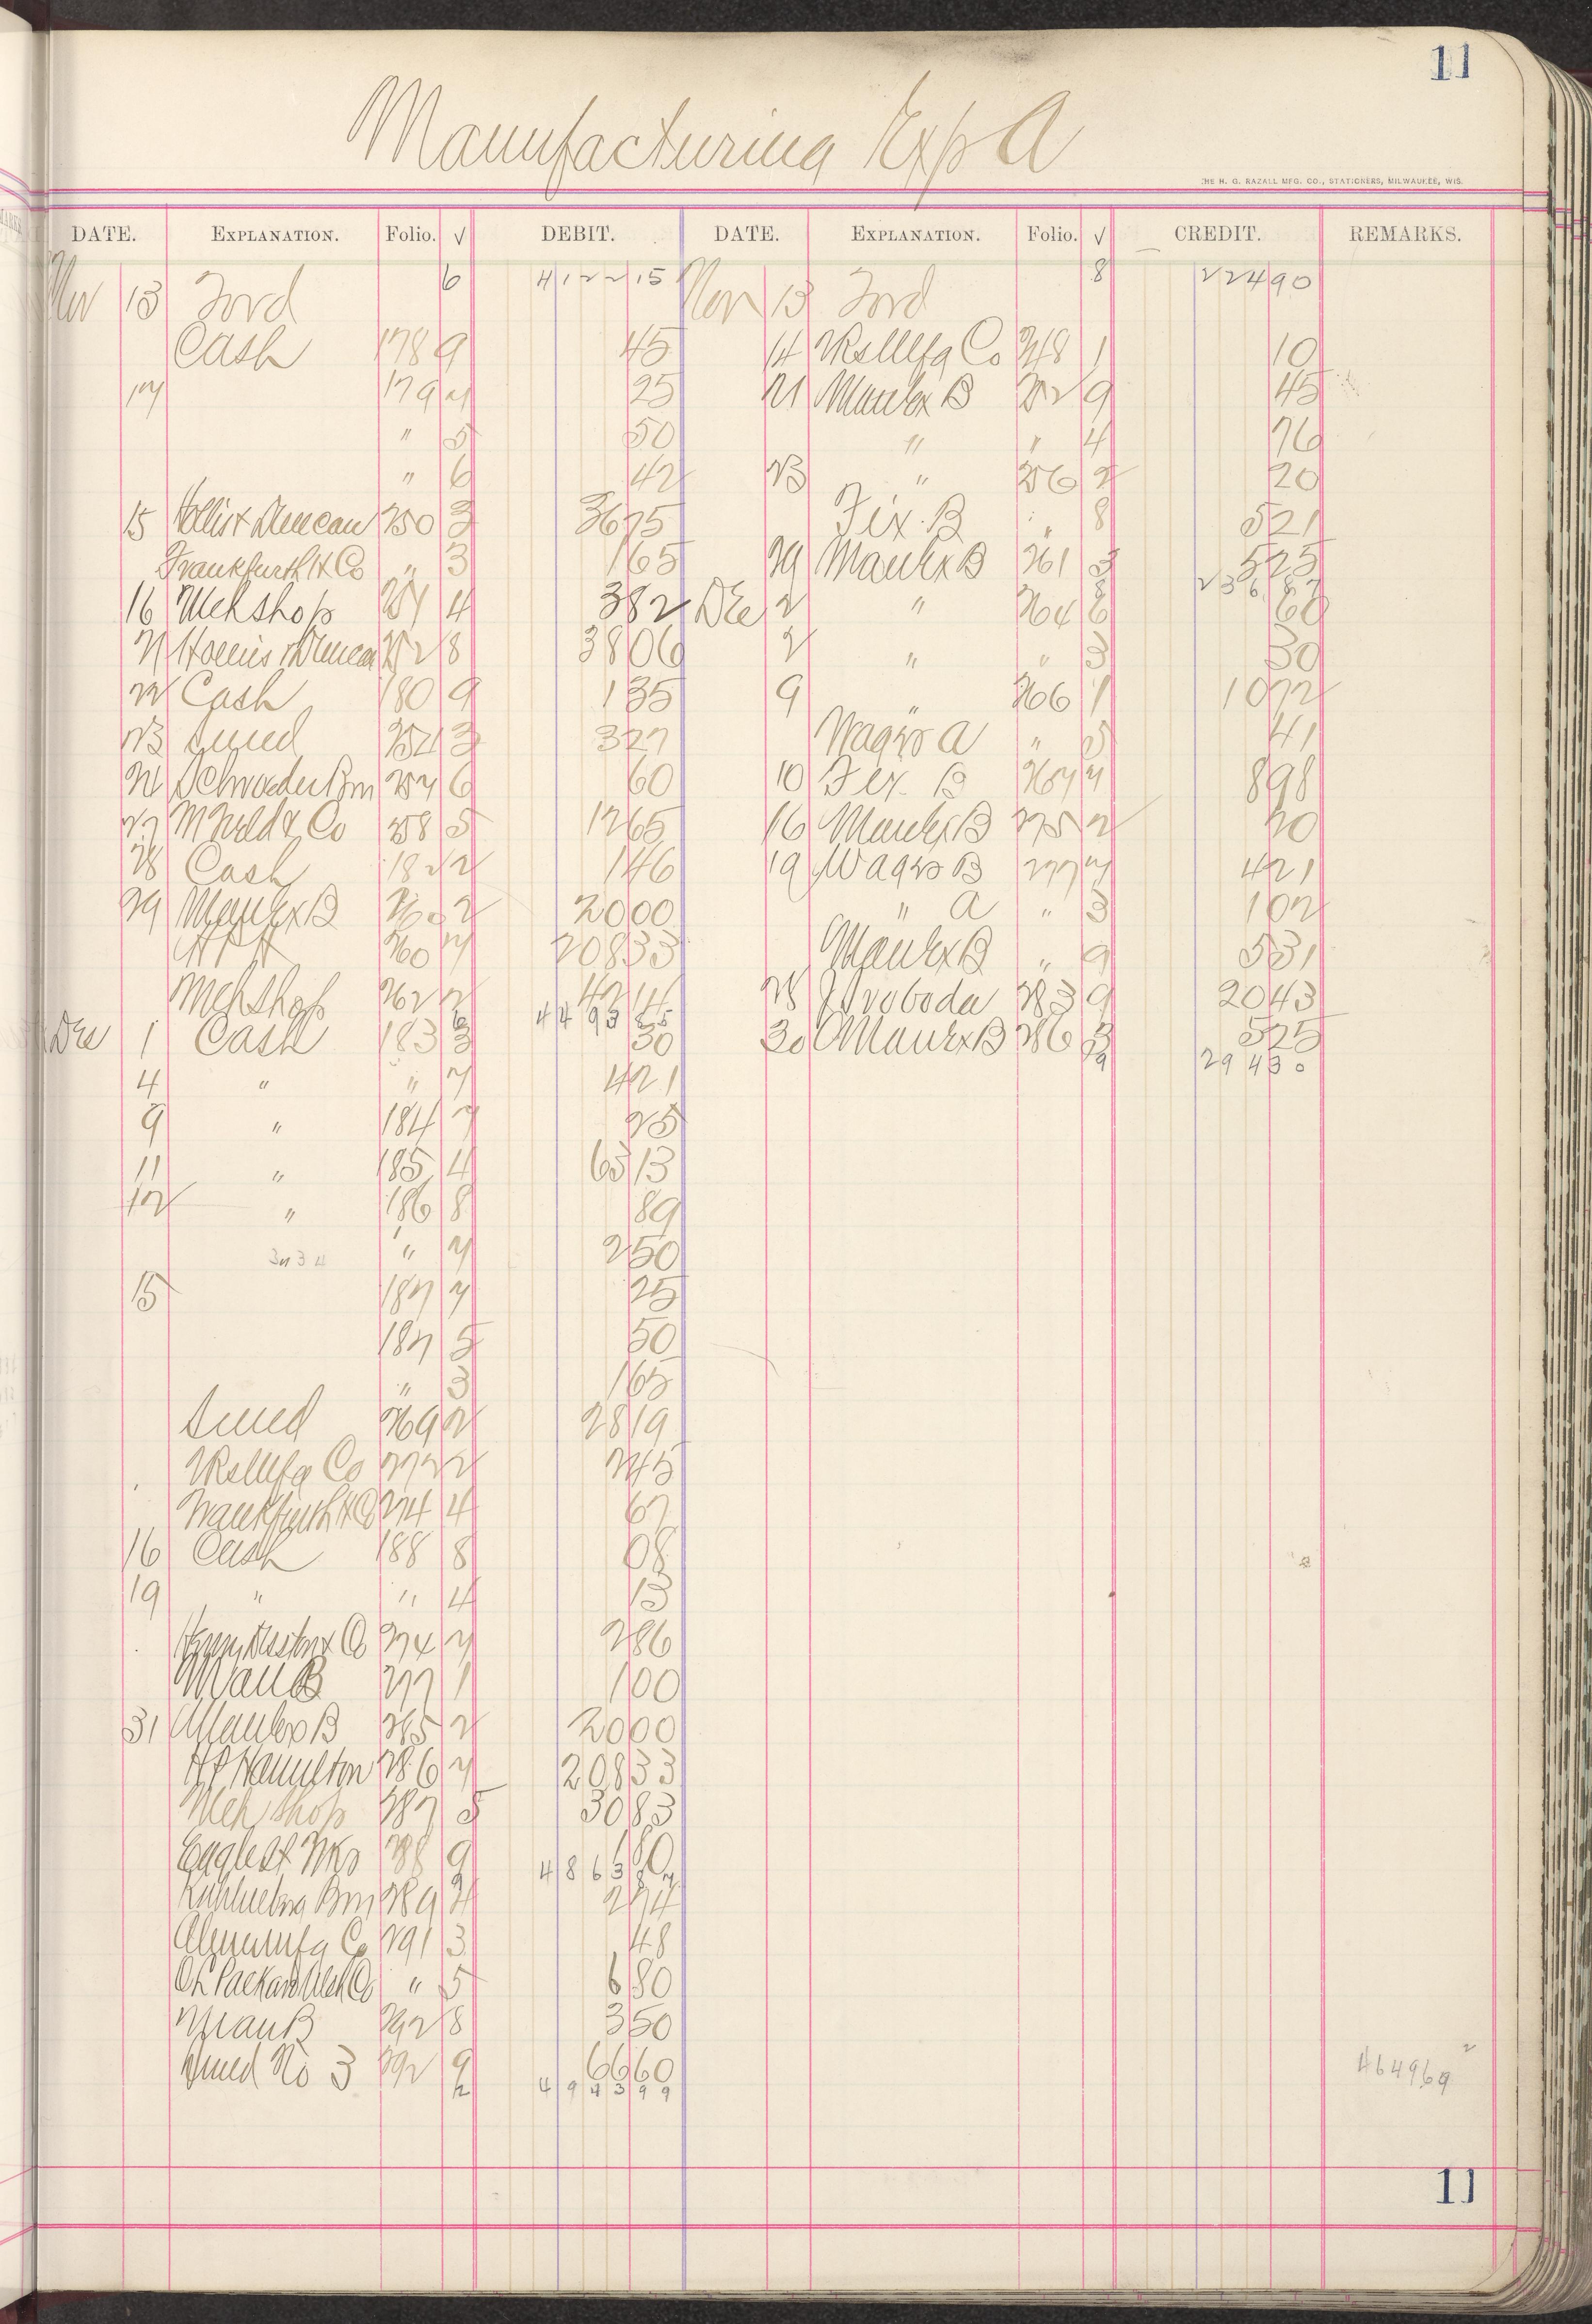 11
Manufacturing Exp A
THE H. G. RAZALL MFG. CO., STATIONERS, MILWAUKEE, WIS.
DATE. EXPLANATION. Folio. √ DEBIT. DATE. EXPLANATION. Folio. √ CREDIT. REMARKS.
Nov 13 Ford 6 4122 15 Nov 13 Ford 8 224 90
Cash 178 9 45 14 Co 248 1 10
14 179 4 25 21 Manfx B 252 9 45
" 5 50 " " 4 76
" 6 42 23 " 256 2 20
15 Hollis & Duncan 250 3 36 75 Fix. B " 8 5 21
Frankfurth H Co " 3 1 65 29 Manfx B 261 3 5 25
236 87
16 Mch shop 251 4 3 82 Dec 2 " 264 6 60
21 Hollis & Duncan 252 8 38 06 2 " " 3 30
22 Cash 180 9 1 35 9 " 266 1 10 72
23 254 3 3 27 Wages A " 5 41
24 Schroeder Bm 257 6 60 10 Fix. B 267 4 8 98
27 Co 258 5 12 65 16 Manfx B 275 2 20
28 Cash 182 2 1 46 19 Wages B 277 4 4 21
29 Manfx B 260 2 20 00 " A " 3 1 02
H P H 260 4 208 33 Manfx B " 9 5 31
Mch shop 262 2 42 14 28 J Svoboda 283 9 20 43
4493 55
Dec 1 Cash 183 3 30 30 Manfx B 286 3 5 25
294 30
4 " " 7 4 21
9 " 184 7 25
11 " 185 4 65 13
12 " 186 8 89
" 4 2 50
15 187 4 25
187 5 50
" 3 1 65
269 2 28 19
Co 272 2 2 45
Frankfurth H Co 274 4 67
16 Cash 188 8 08
19 " " 4 13
Co 274 4 2 86
Man B 277 1 1 00
31 Manfx B 285 2 20 00
H P Hamilton 286 4 208 33
Mch shop 287 5 30 83
Eagle St Wks 288 9 1 80
4863
Bm 289 4 2 74
Co 291 3 48
O L Packard Mch Co " 5 6 80
Man B 292 8 3 50
No 3 292 9 66 60
4943 99
464969
11